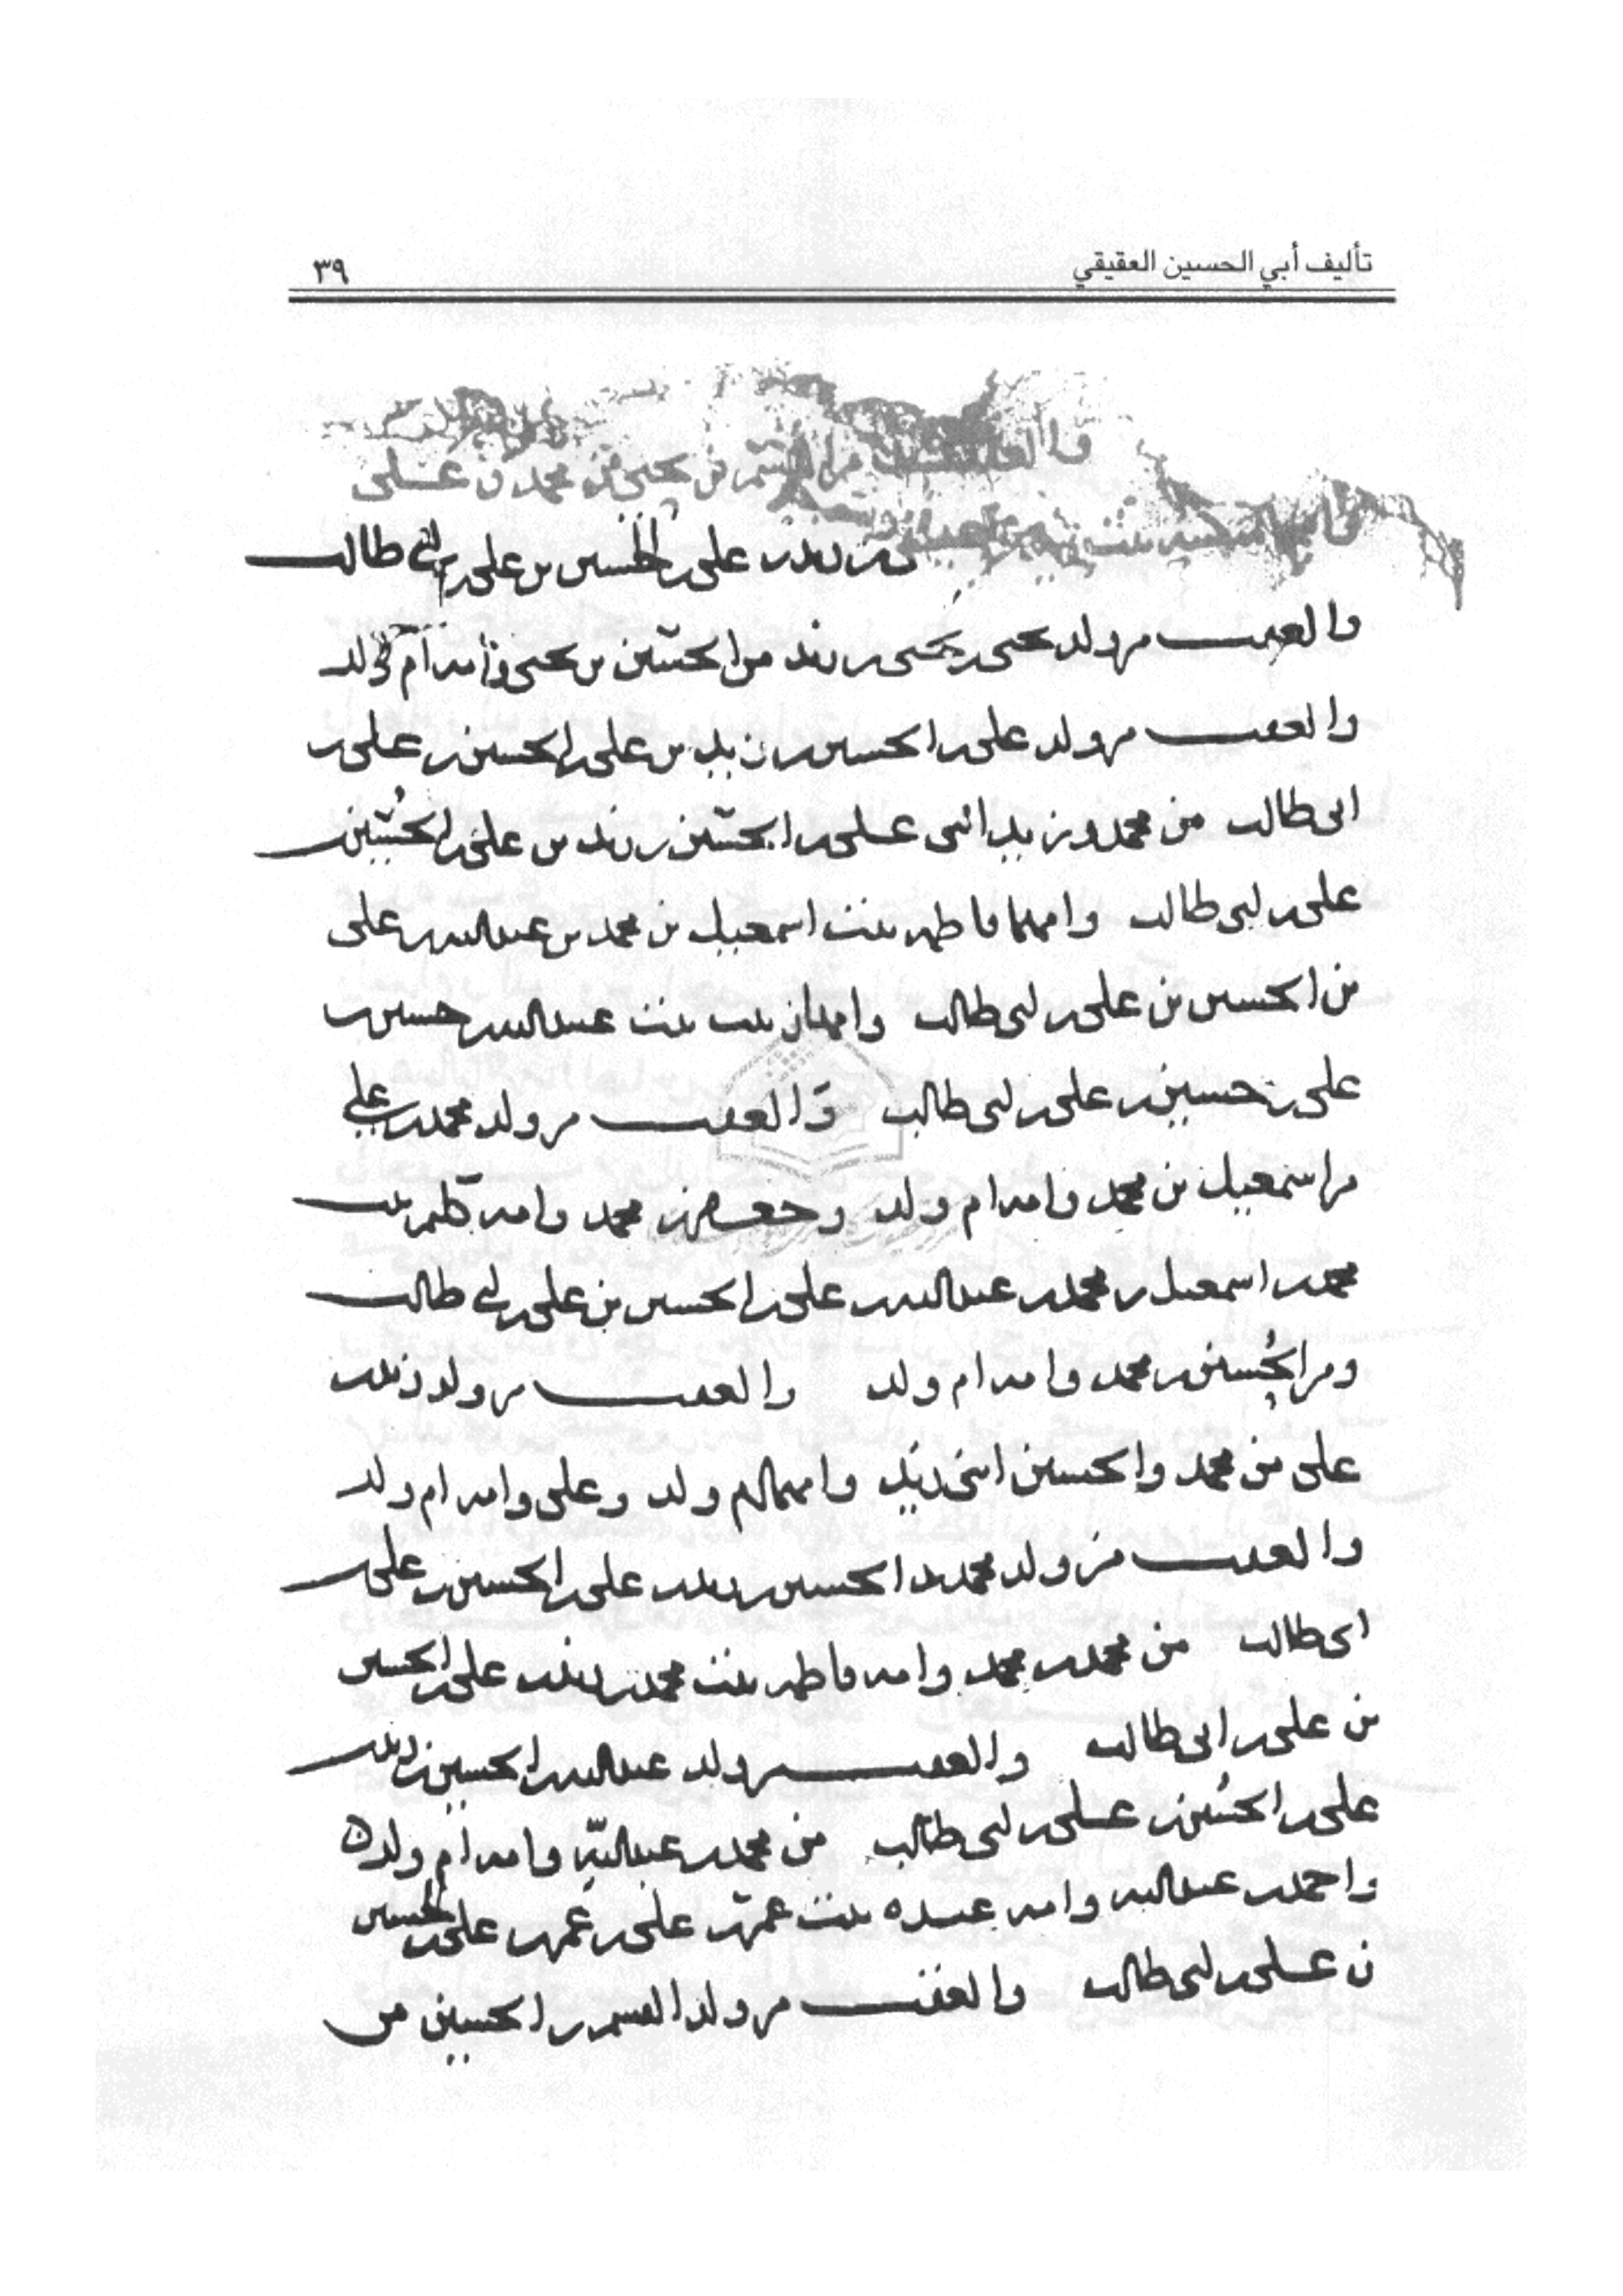 تأليف أبي الحسين العقيقي
٣٩
بن يحيى بن محمد بن على
بن زيد بن على بن الحسين بن على بن ابى طالب
والعقب من ولد يحيى بن يحيى بن زيد من الحسين بن يحيى وامه ام ولد
والعقب من ولد على بن الحسين بن زيد بن على بن الحسين بن على بن
ابى طالب من محمد وزيد ابنى على بن الحسين بن زيد بن على بن الحسين بن
على بن ابى طالب وامهما فاطمه بنت اسمعيل بن محمد بن عبدالله بن على
بن الحسين بن على بن ابى طالب وامها زينب بنت عبدالله بن حسين بن
على بن حسين بن على بن ابى طالب والعقب من ولد محمد بن على
من اسمعيل بن محمد وامه ام ولد وجعفر بن محمد وامه كلثم بنت
محمد بن اسمعيل بن محمد بن عبدالله بن على بن الحسين بن على بن ابى طالب
ومن الحسين بن محمد وامه ام ولد والعقب من ولد زيد بن
على من محمد والحسين ابنى زيد وامهما ام ولد وعلى وامه ام ولد
والعقب من ولد محمد بن الحسين بن زيد بن على بن الحسين بن على بن
ابى طالب من محمد بن محمد وامه فاطمه بنت محمد بن زيد بن على بن الحسين
بن على بن ابى طالب والعقب من ولد عبدالله بن الحسين بن زيد بن
على بن الحسين بن على بن ابى طالب من محمد بن عبدالله وامه ام ولد
واحمد بن عبدالله وامه عبده بنت عمر بن على بن عمر بن على بن الحسين
بن على بن ابى طالب والعقب من ولد القسم بن الحسين بن